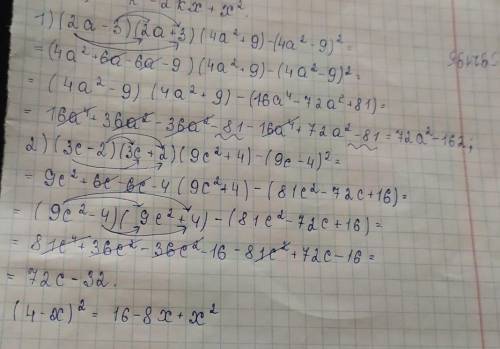 - 2kx + x².
1) (2a-3)(2a+3)(4a²+9)-(4a²-9)²=
=(4a²+6a-6a-9)(4a²+9)-(4a²-9)²=
=(4a²-9)(4a²+9)-(16a⁴-72a²+81)=
=16a⁴+36a²-36a²-81-16a⁴+72a²-81=72a²-162;
2) (3c-2)(3c+2)(9c²+4)-(9c-4)²=
=9c²+6c-6c-4(9c²+4)-(81c²-72c+16)=
=(9c²-4)(9c²+4)-(81c²-72c+16)=
=81c⁴+36c²-36c²-16-81c²+72c-16=
=72c-32.
(4-x)²=16-8x+x²